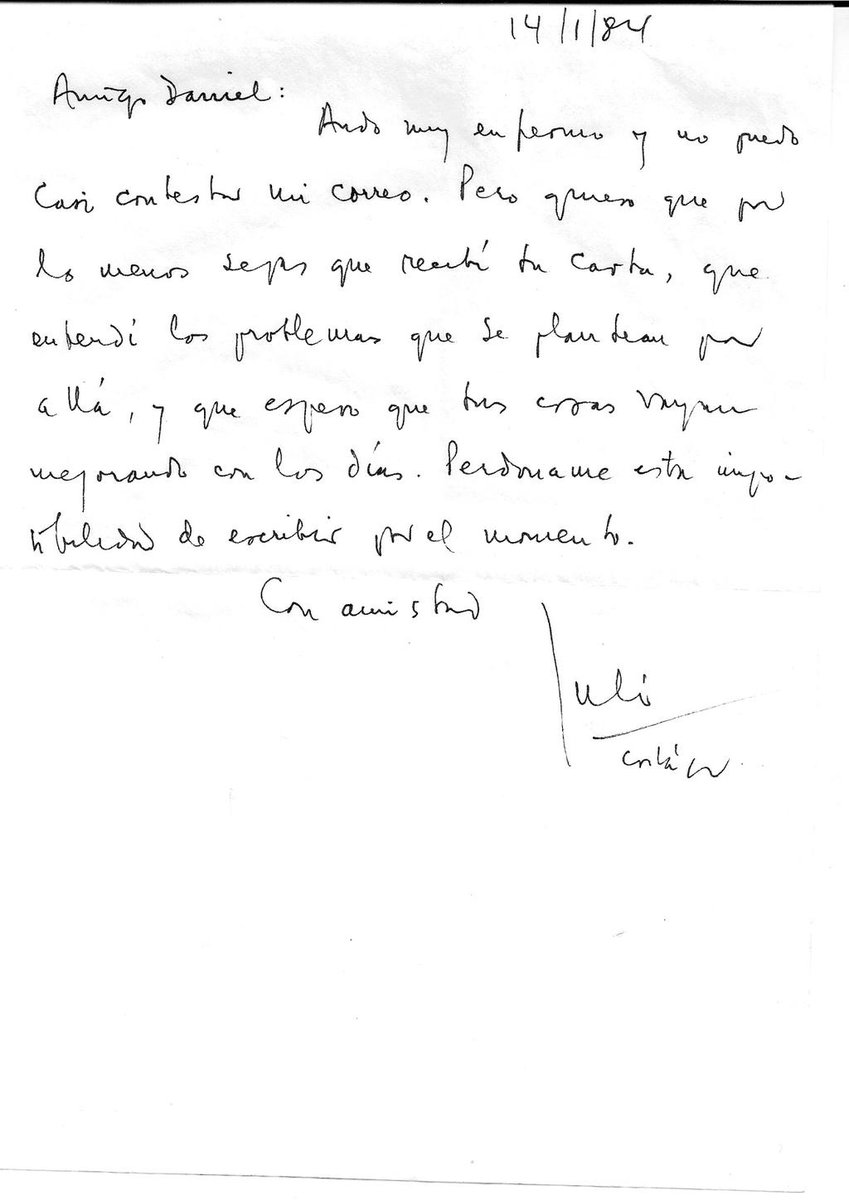 14/1/84
Amigo Daniel:
Ando muy enfermo y no puedo
casi contestar mi correo. Pero quiero que por
lo menos sepas que recibí tu carta, que
entendí los problemas que se plantean por
allá, y que espero que tus cosas vayan
mejorando con los días. Perdoname esta impo-
sibilidad de escribir por el momento.
Con amistad
Julio
Cortázar